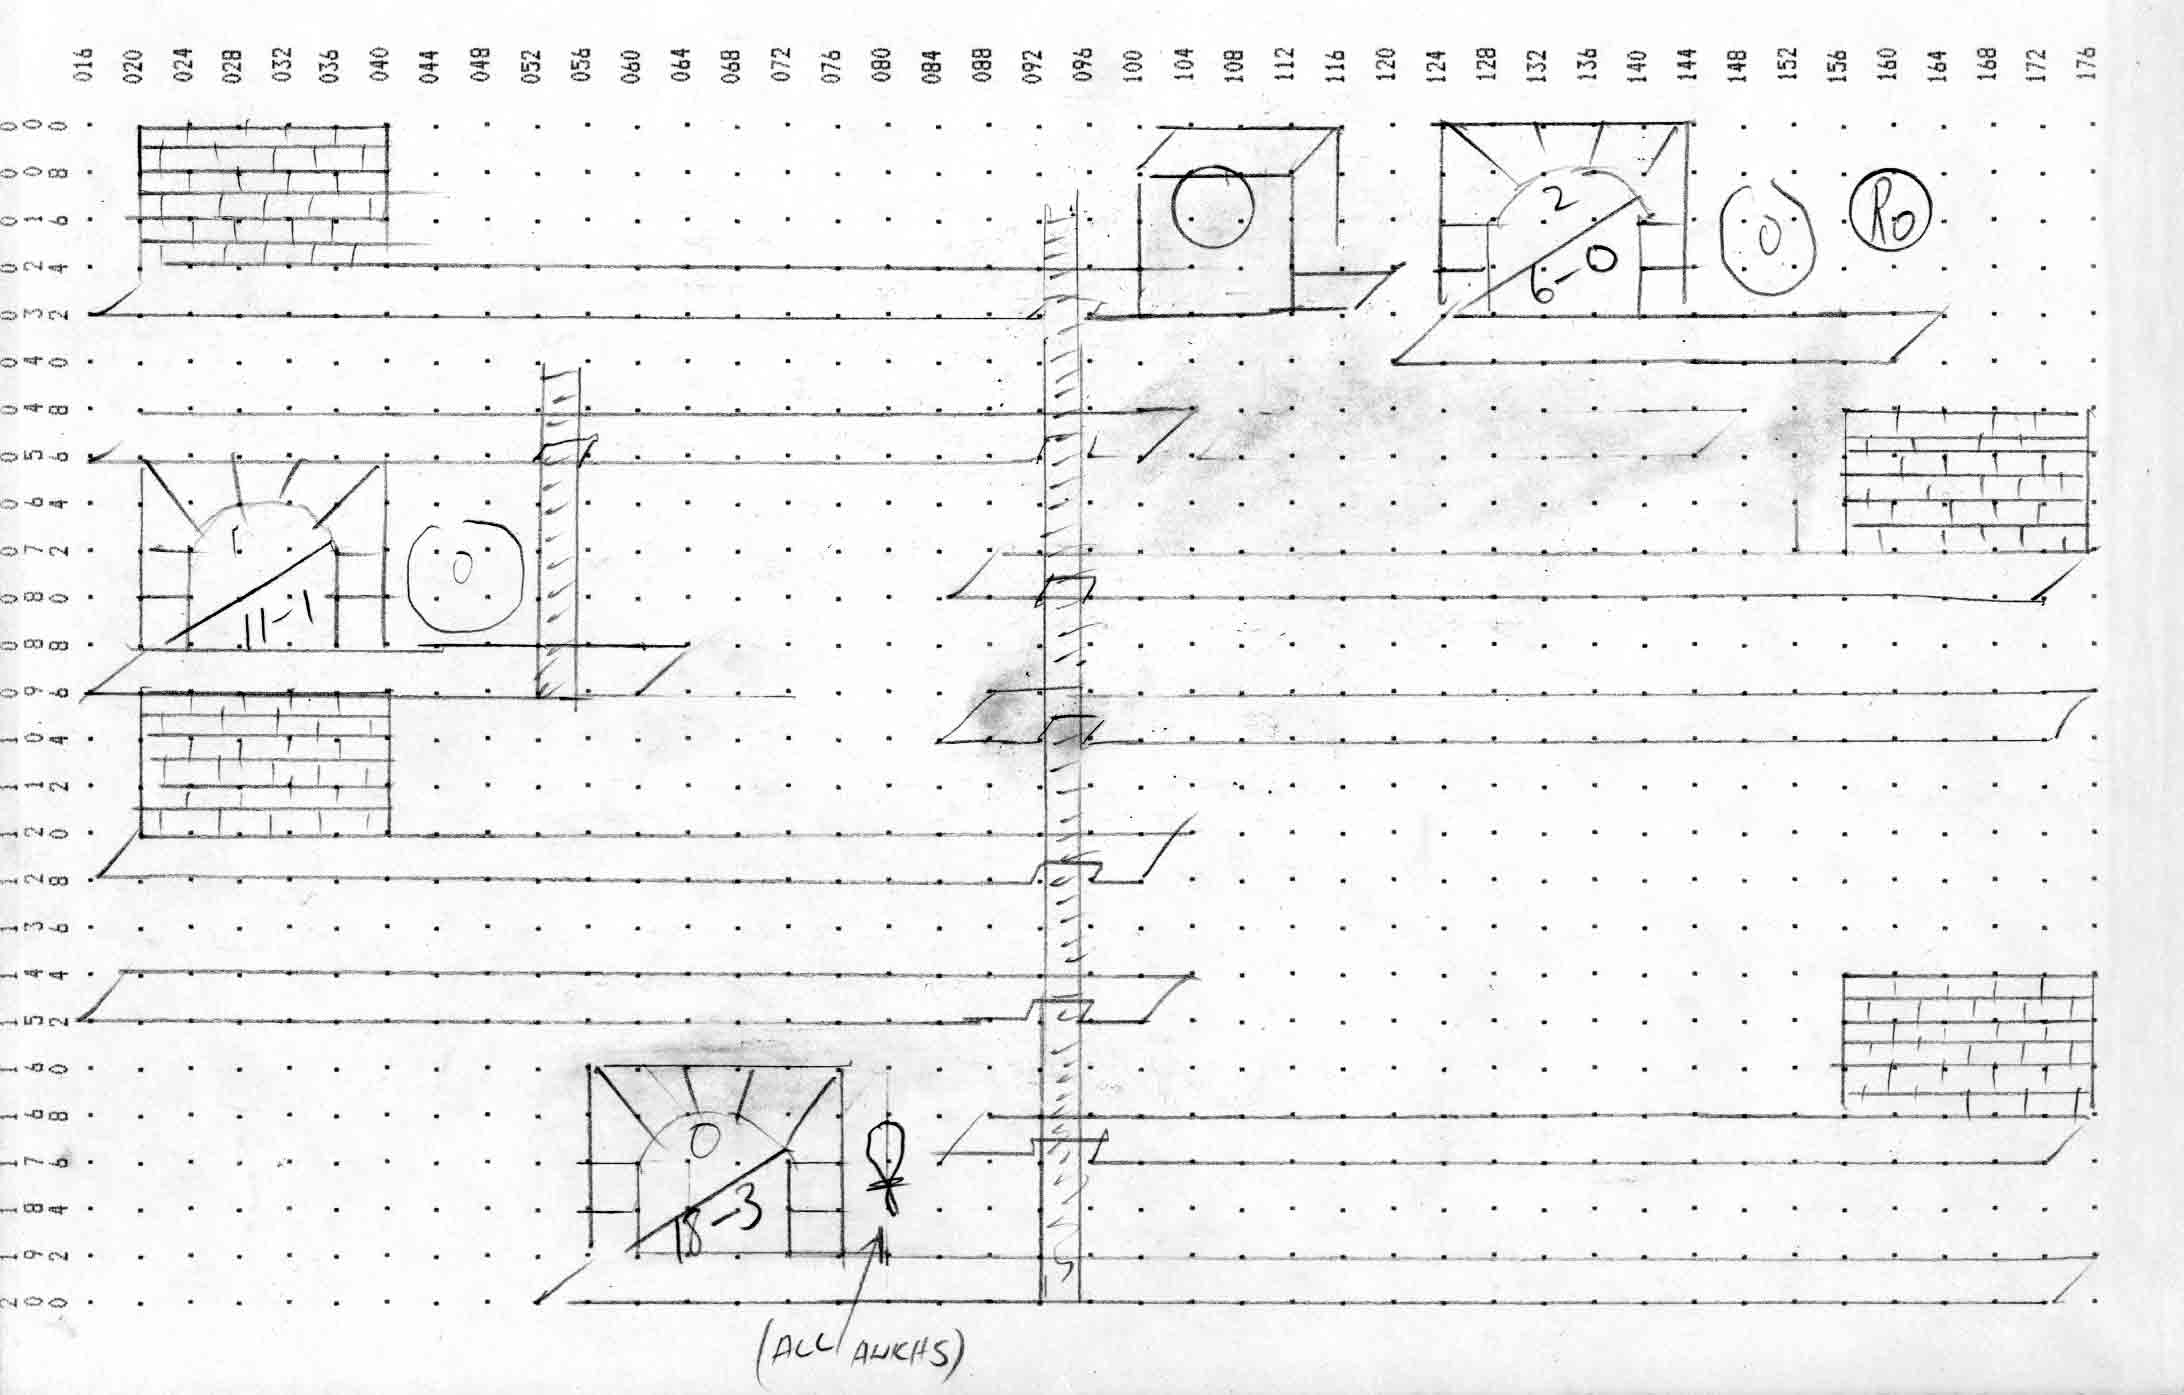 016 020 024 028 032 036 040 044 048 052 056 060 064 068 072 076 080 084 088 092 096 100 104 108 112 116 120 124 128 132 136 140 144 148 152 156 160 164 168 172 176
000
008
2
016
0
R0
6-0
024
032
040
048
056
064
1
072
0
080
11-1
088
096
104
112
120
128
136
144
152
160
168
0
176
184
18-3
192
200
(ALL ANKHS)